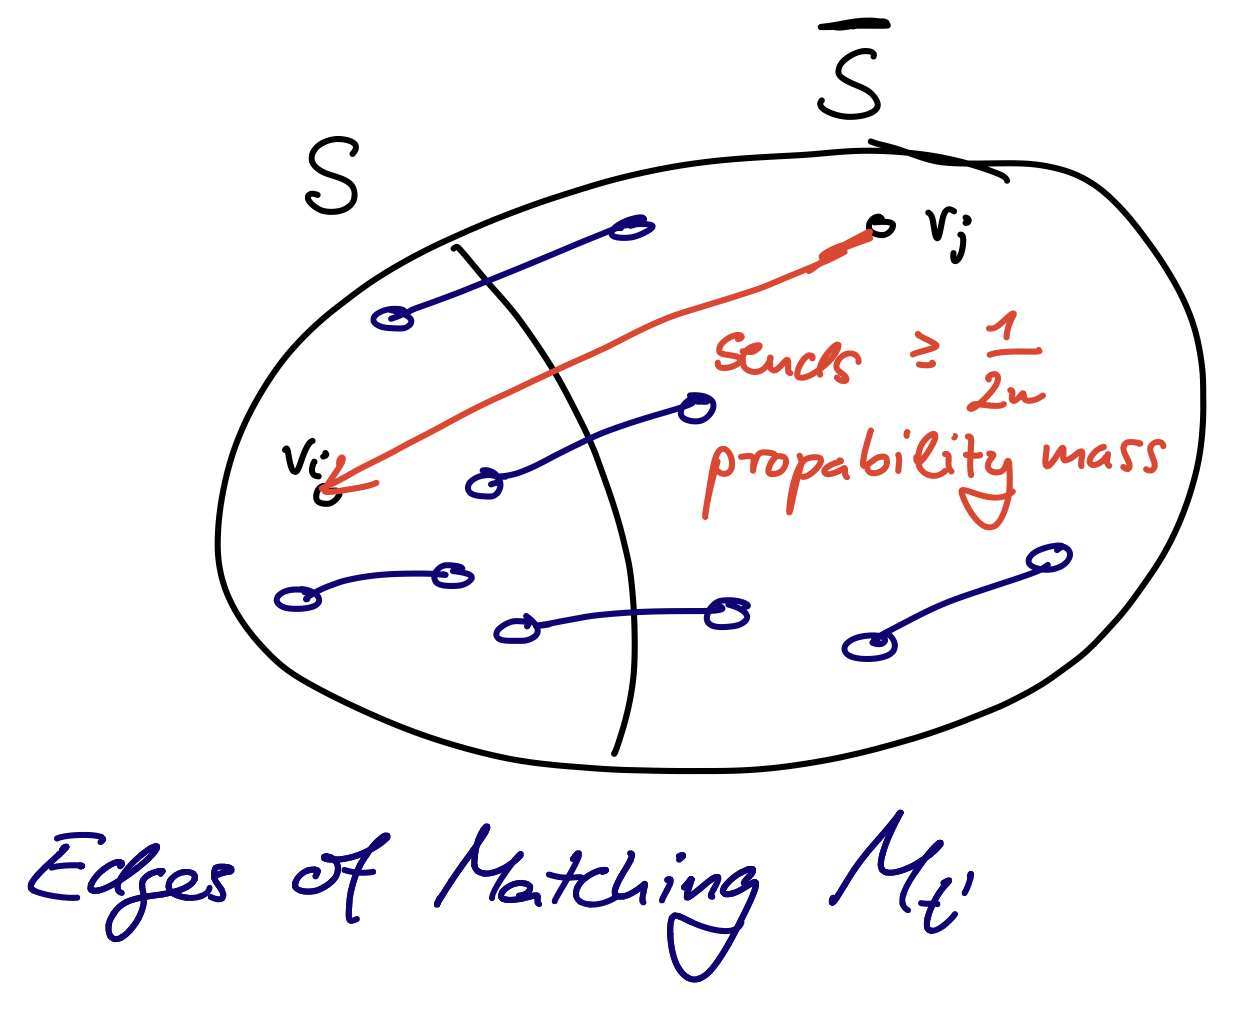 S̅
S
v_j
sends ≥ 1/2n
propability mass
v_i
Edges of Matching M_i